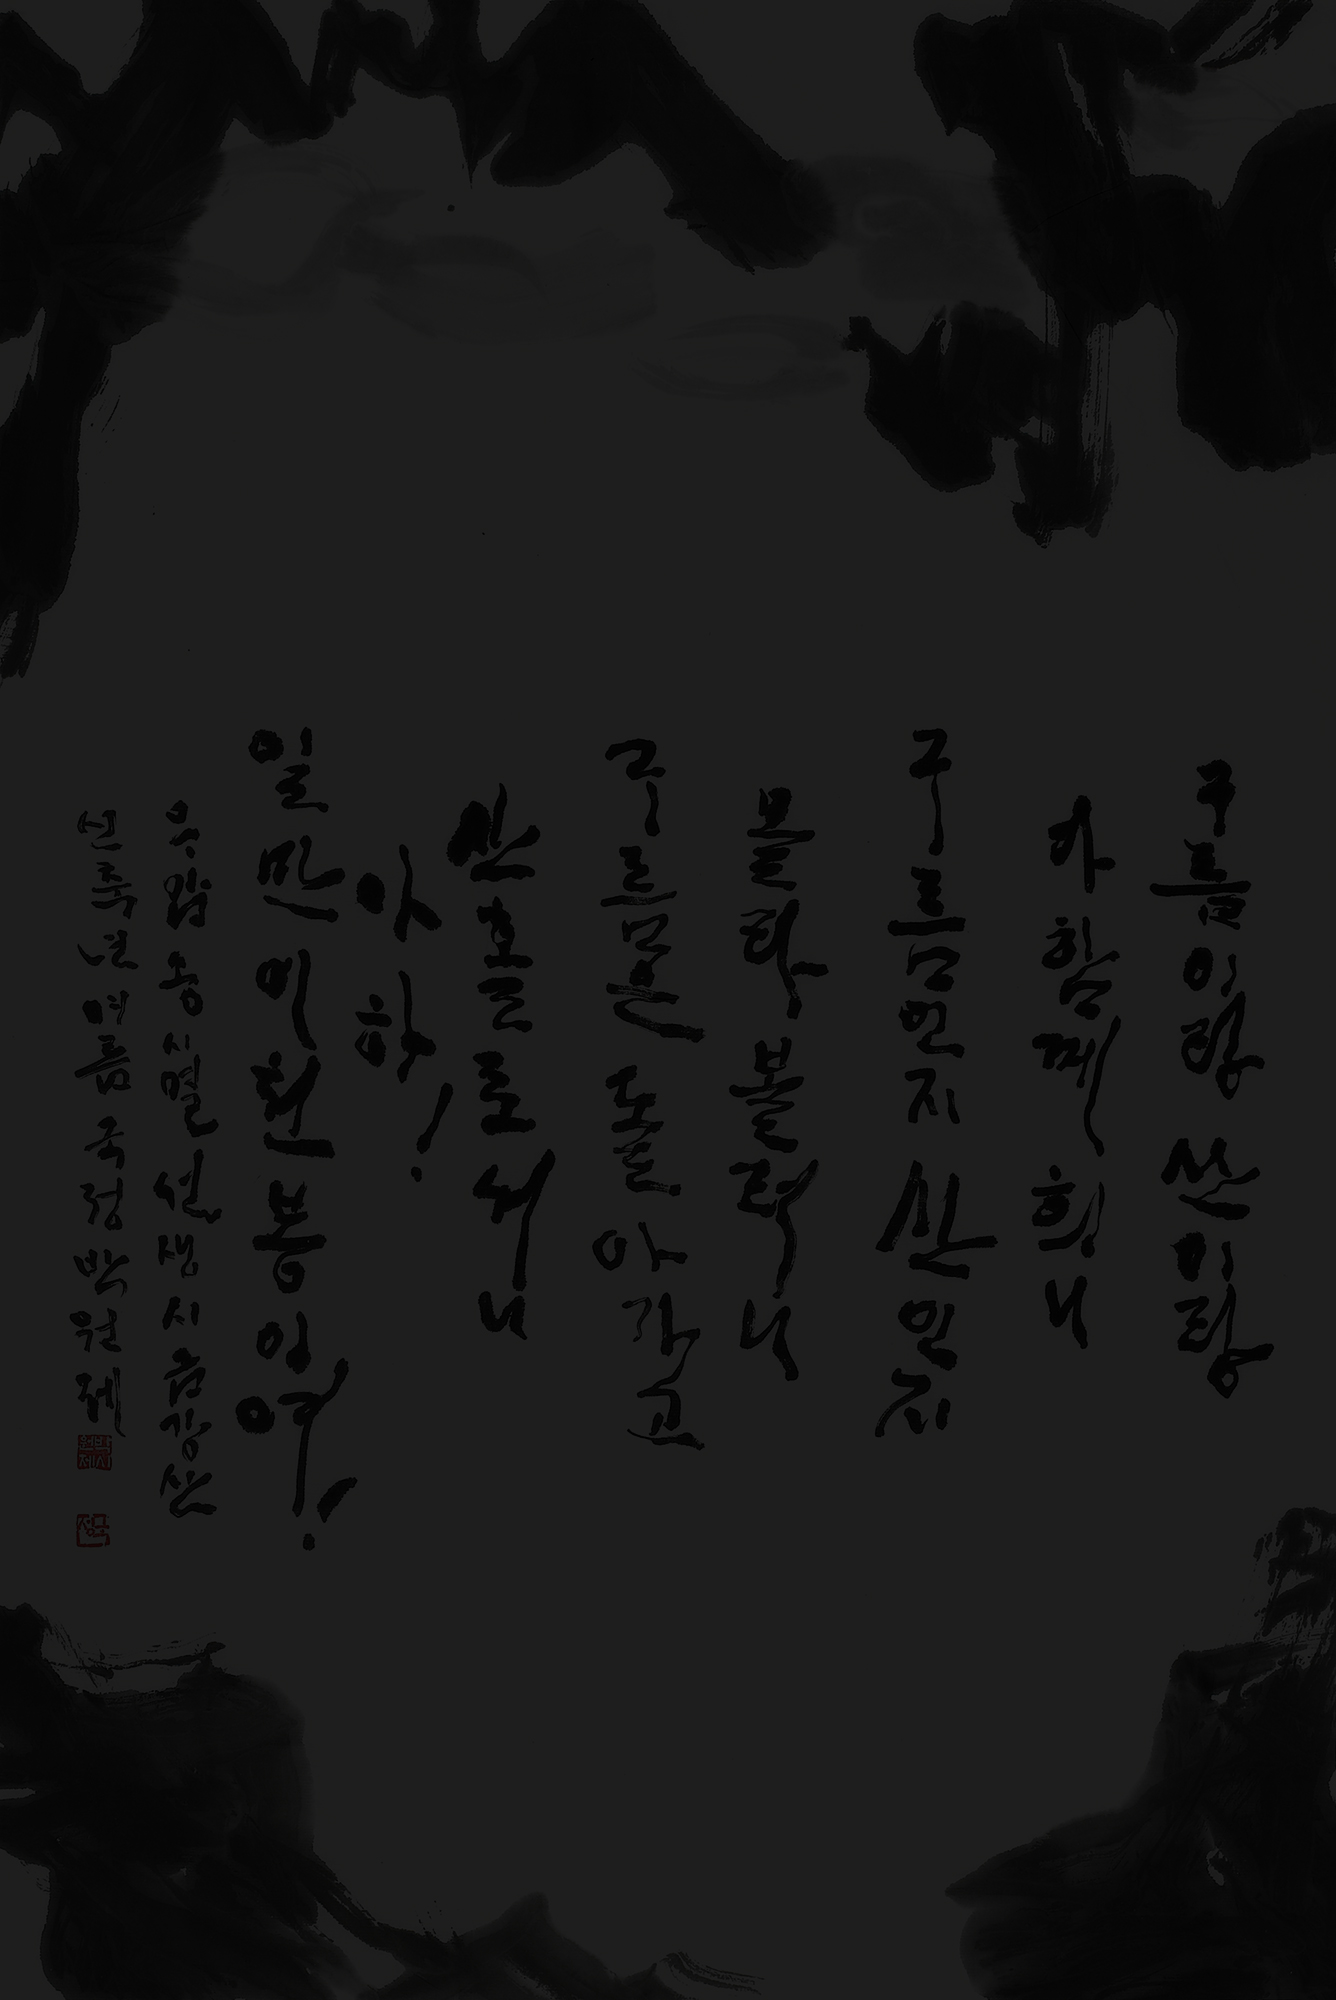 구름이랑 산이랑
다 함께 희니
구름인지 산인지
몰라 볼러니
구름은 돌아가고
산 홀로 서니
아하!
일만이천봉이여!
우암 송시열 선생 시 금강산
신축년 여름 국정 박원제
국정